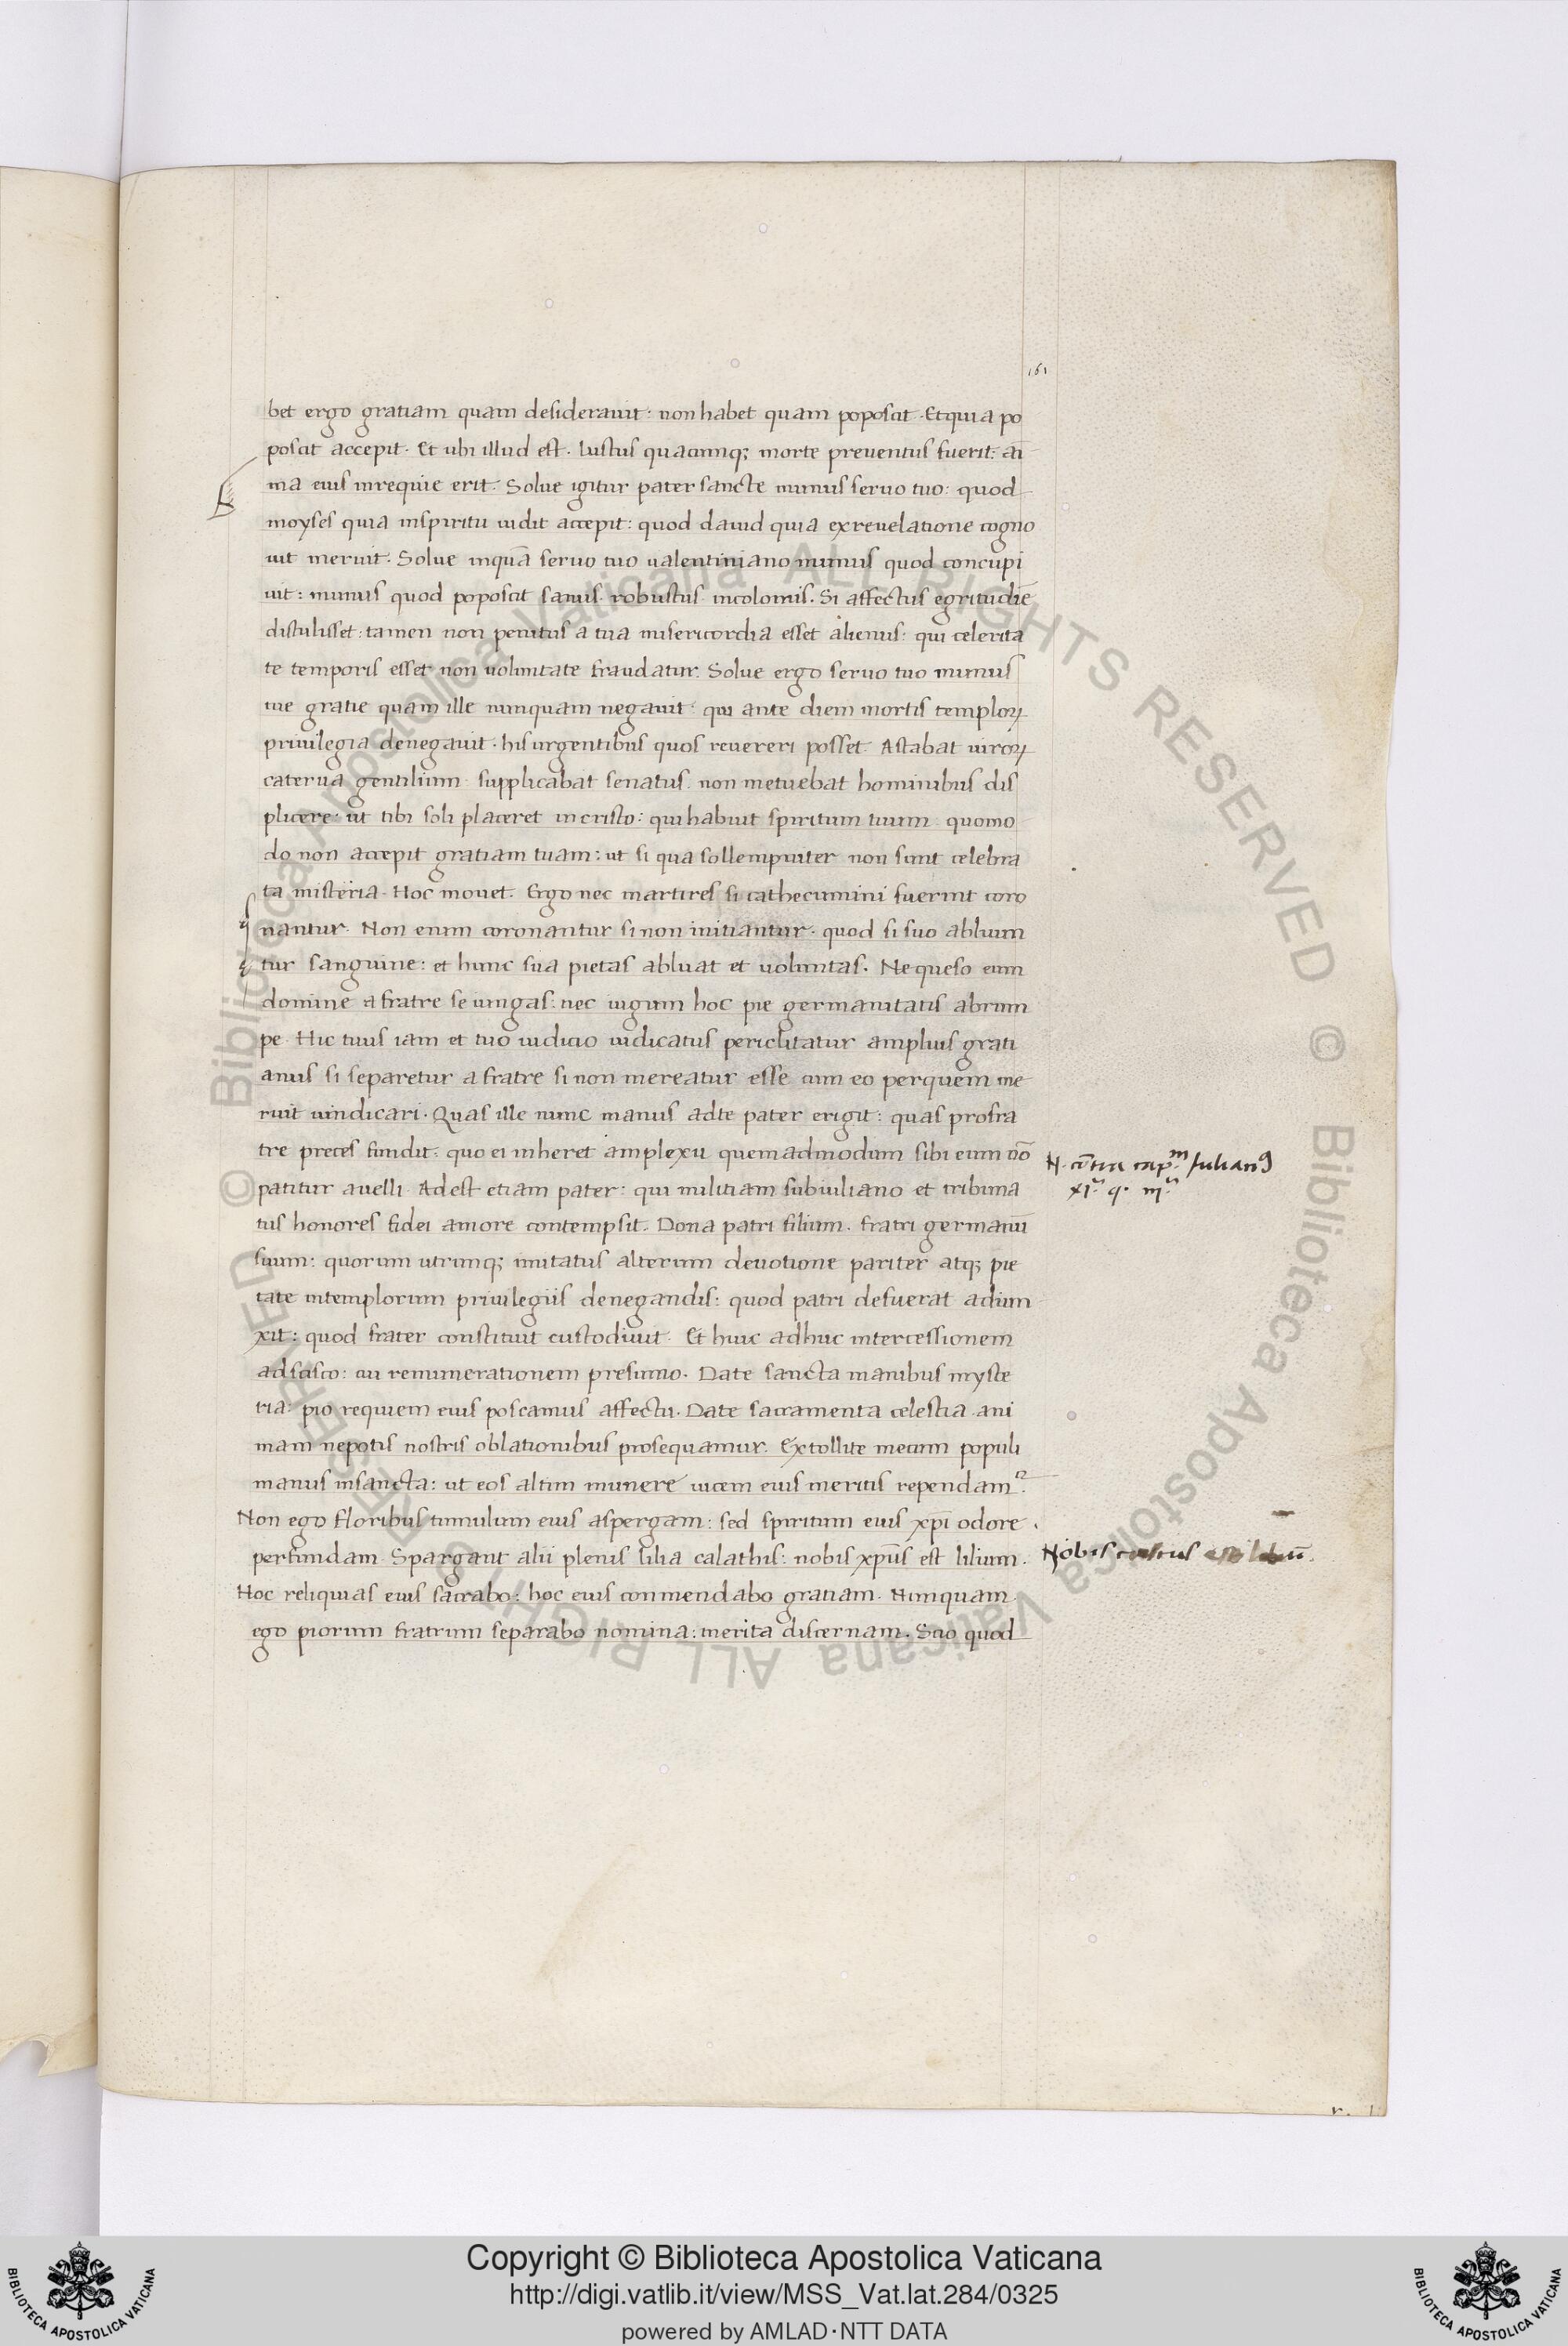 161
bet ergo gratiam quam desiderauit: non habet quam poposcit. Et quia po
poscit accepit. Et ubi illud est. Iustus quacumq; morte preuentus fuerit: aī
ma eius in requie erit. Solue igitur pater sancte munus seruo tuo: quod
moyses quia in spiritu uidit accepit: quod dauid quia ex reuelatione cogno
uit meruit. Solue inquā seruo tuo ualentiniano munus quod concupi
uit: munus quod poposcit sanus. robustus. incolomis. Si affectus egritudiē
distulisset: tamen non penitus a tua misericordia esset alienus: qui celerita
te temporis esset non uoluntate fraudatur. Solue ergo seruo tuo munus
tue gratie quam ille nunquam negauit: qui ante diem mortis temploꝝ
priuilegia denegauit. his urgentibus quos reuereri posset. Astabat uiroꝝ
caterua gentilium. supplicabat senatus. non metuebat hominibus dis
plicere: ut tibi soli placeret in cristo: qui habuit spiritum tuum. quomo
do non accepit gratiam tuam: ut si qua sollempniter non sunt celebra
ta misteria. Hoc mouet. Ergo nec martires si cathecumini fuerint coro
nantur. Non enim coronantur si non initiantur. quod si suo abluun
tur sanguine: et hunc sua pietas abluat et uoluntas. Ne queso eum
domine a fratre seiungas: nec iugum hoc pie germanitatis abrum
pe. Hic tuus iam et tuo iudicio iudicatus periclitatur amplius grati
anus si separetur a fratre si non mereatur esse cum eo per quem me
ruit uindicari. Quas ille nunc manus ad te pater erigit: quas pro fra
tre preces fundit: quo ei inheret amplexu quemadmodum sibi eum nō
patitur auelli. Adest etiam pater: qui militiam sub iuliano et tribuna
tus honores fidei amore contempsit. Dona patri filium. fratri germanū
suum: quorum utrunq; imitatus alterum deuotione pariter atq; pie
tate in templorum priuilegiis denegandis: quod patri defuerat adiun
xit: quod frater constituit custodiuit. Et huic adhuc intercessionem
adscisco: cui remunerationem presumo. Date sancta manibus myste
ria: pio requiem eius poscamus affectu. Date sacramenta celestia. ani
mam nepotis nostris oblationibus prosequamur. Extollite mecum populi
manus in sancta: ut eos altim munere uicem eius meritis rependam.
Non ego floribus tumulum eius aspergam: sed spiritum eius xp̄i odore
perfundam. Spargant alii plenis lilia calathis: nobis xp̄us est lilium.
Hoc reliquias eius sacrabo: hoc eius conmendabo gratiam. Nunquam
ego piorum fratrum separabo nomina: merita discernam. Scio quod
N. cōtra cap.m Iulianꝰ
xi.a q. iii.a
Nobis